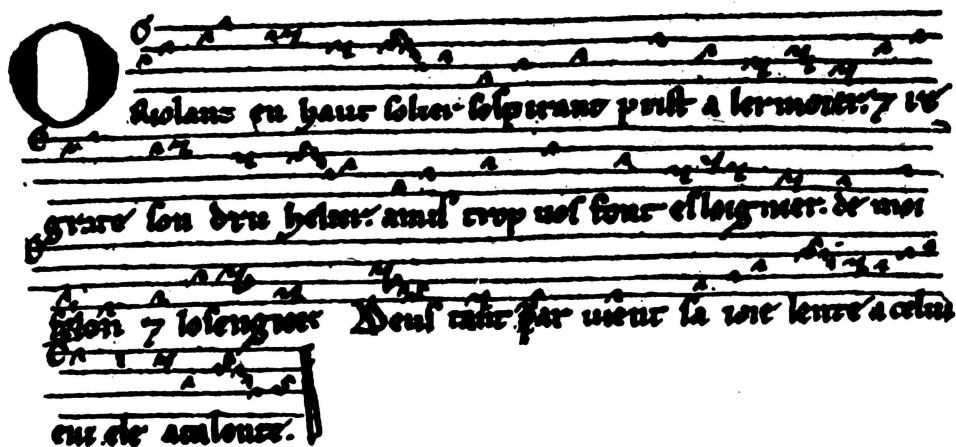 O riolanz en haut solier sospirant prist a lermoier. ⁊ re
grete son dru helier. amis trop vos font esloignier. de moi
felon ⁊ losengier Deus tant par vient sa ioie lente a celui
cui ele atalente.